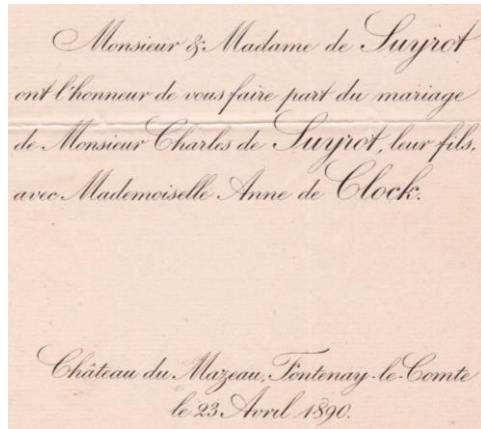 Monsieur & Madame de Suyrot
ont l'honneur de vous faire part du mariage
de Monsieur Charles de Suyrot, leur fils,
avec Mademoiselle Anne de Clock.
Château du Mazeau, Fontenay-le-Comte
le 23 Avril 1890.